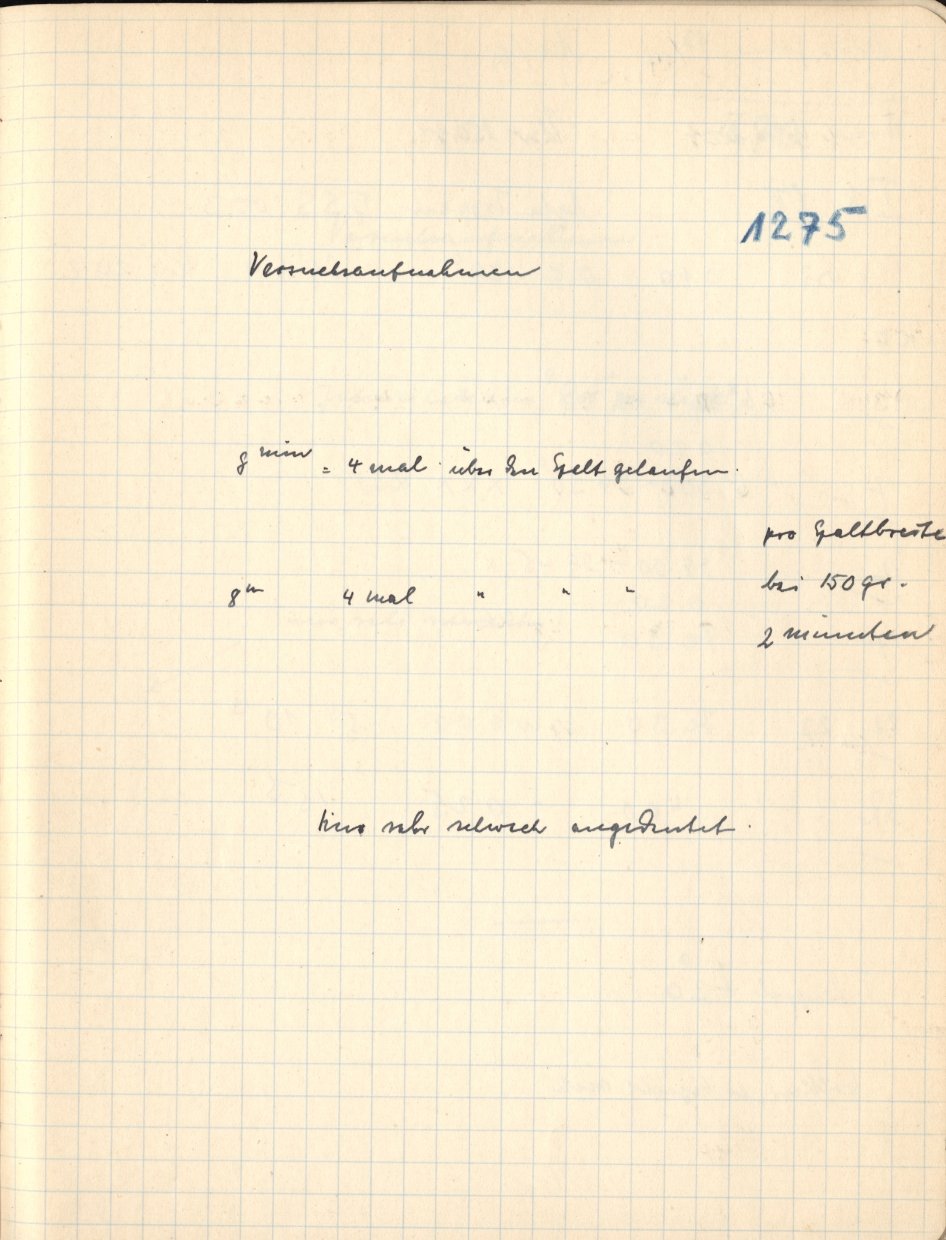 1275
Versuchsaufnahmen
8 min = 4 mal über den Spalt gelaufen.
pro Spaltbreite
bei 150 gr.
8m 4 mal " " "
2 minuten
sehr schwach angedeutet.